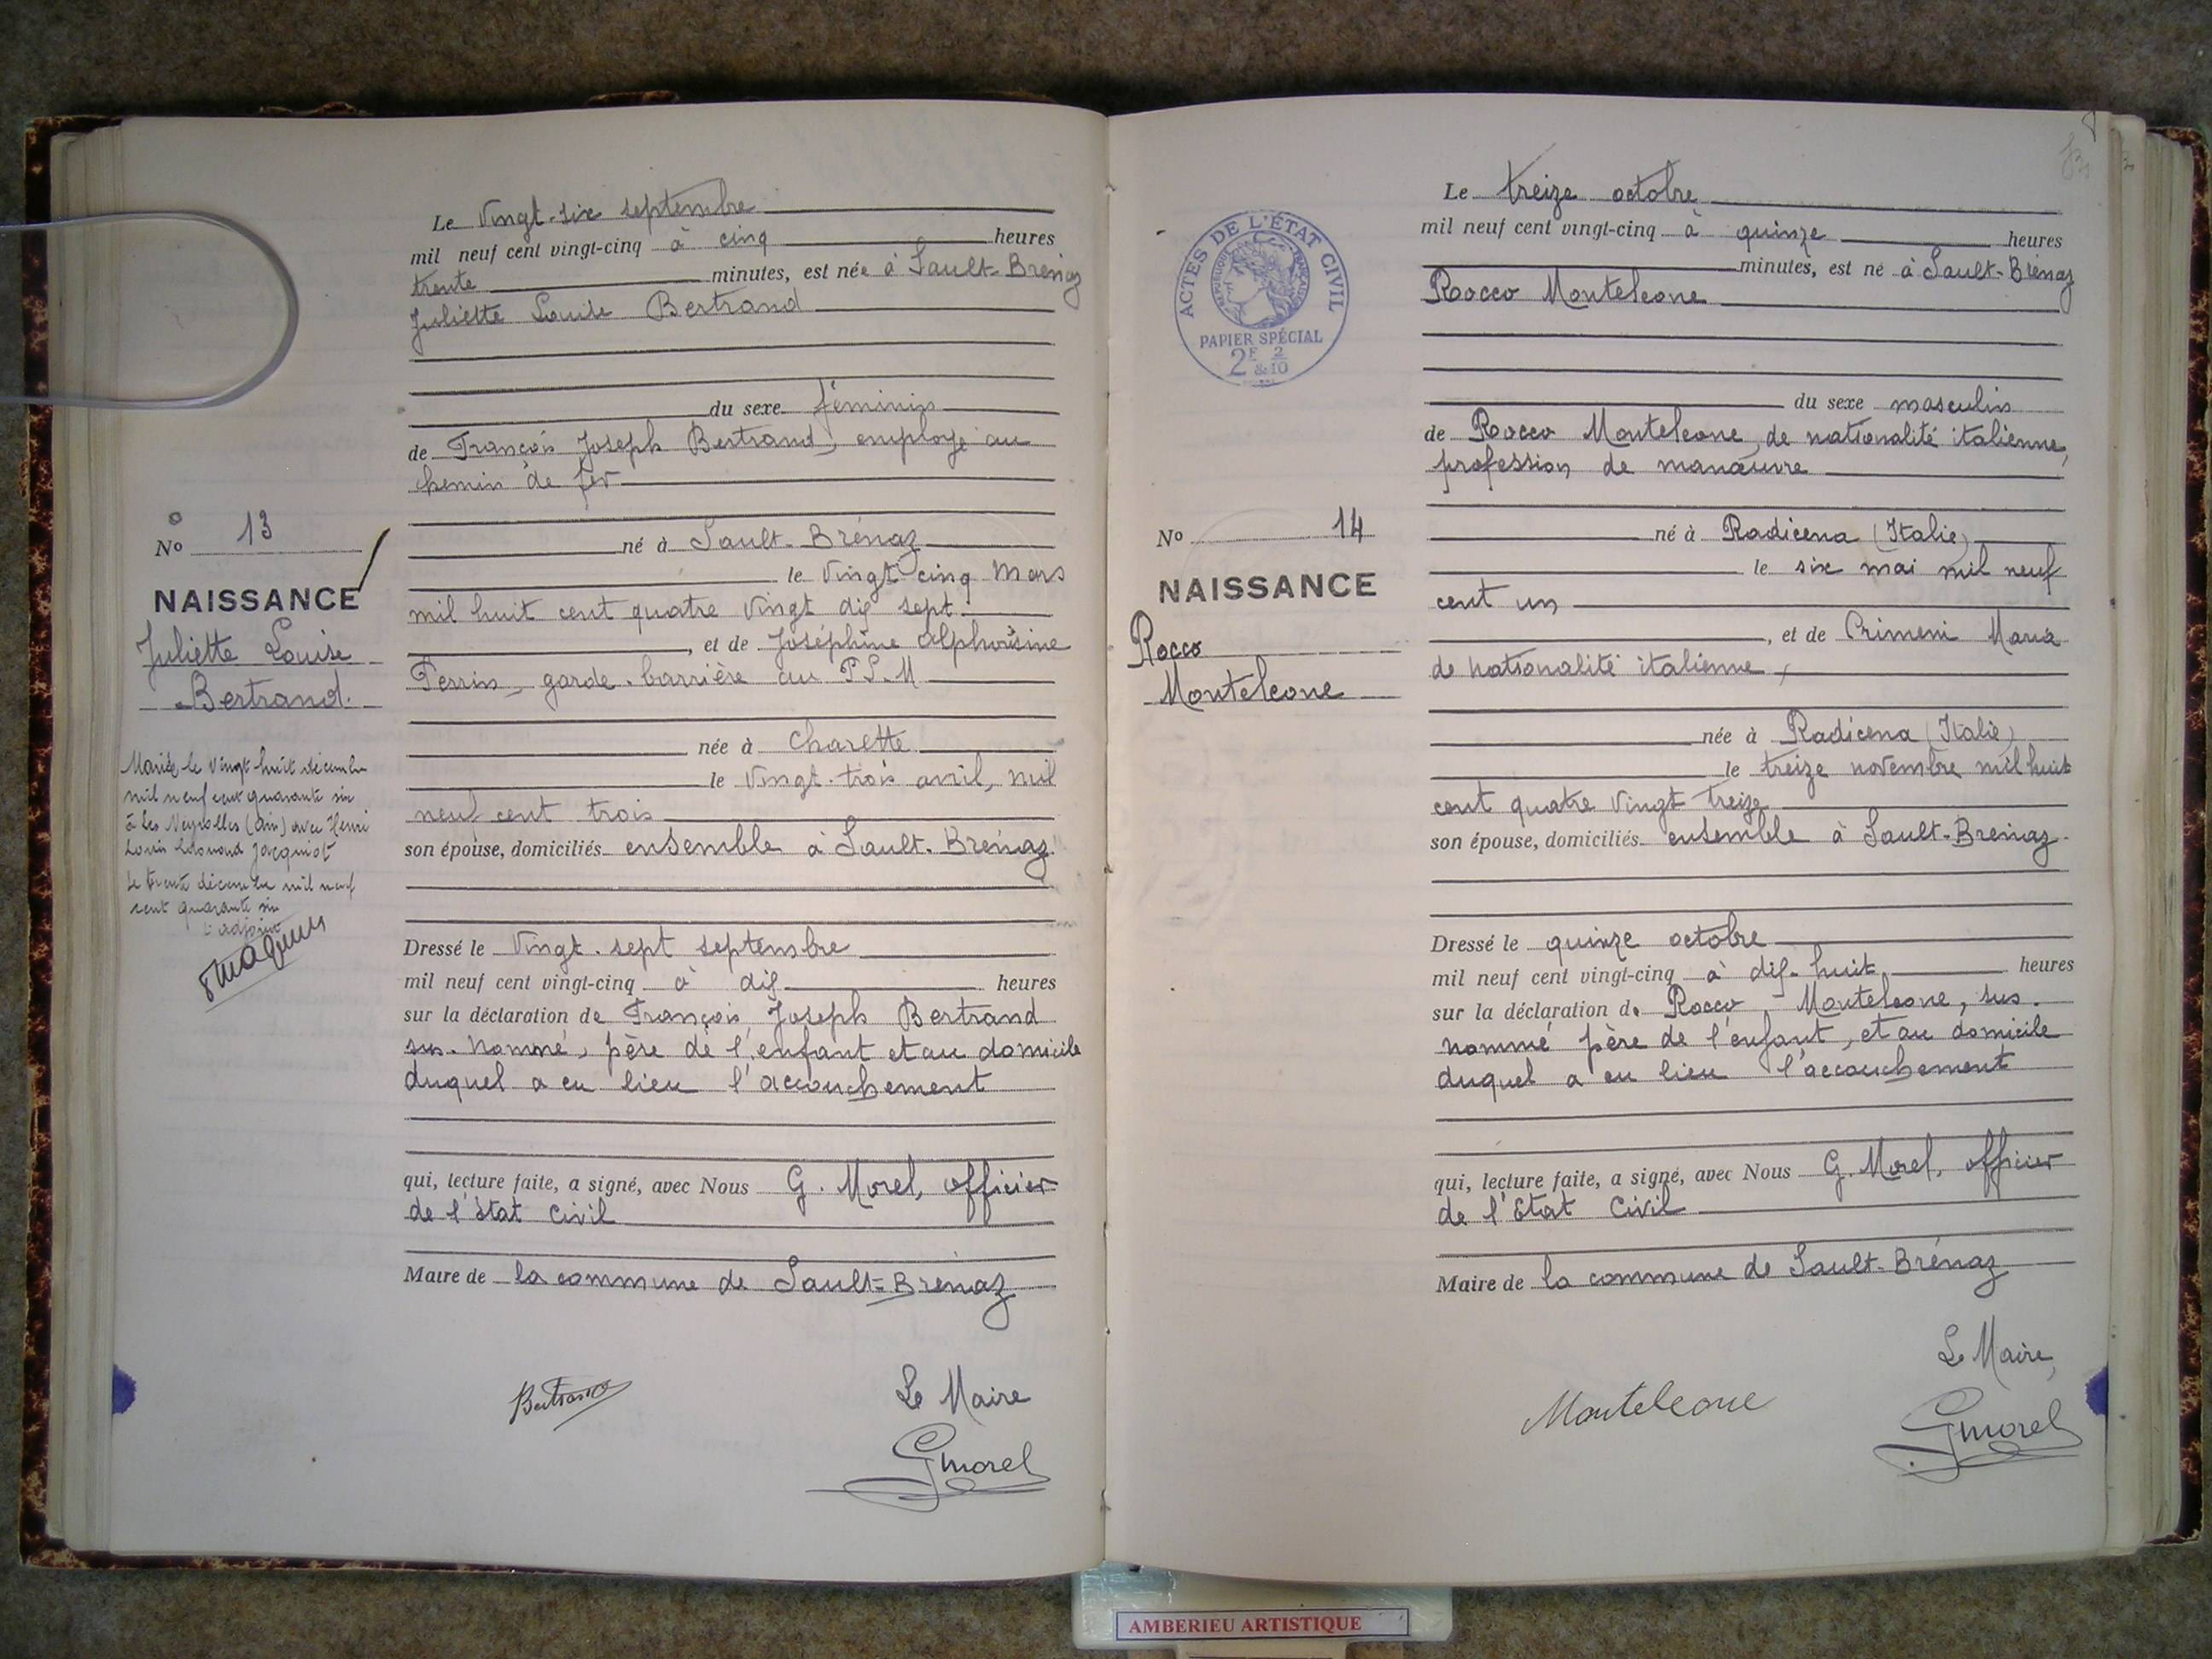 Le vingt-six septembre
mil neuf cent vingt-cinq à cinq heures
trente minutes, est née à Sault-Brénaz
Juliette Louise Bertrand
du sexe féminin
de François Joseph Bertrand, employé au
chemin de fer
né à Sault-Brénaz
le vingt cinq Mars
mil huit cent quatre vingt dix sept
, et de Joséphine Alphonsine
Perrin, garde-barrière au P.L.M
née à Charette
le vingt-trois avril, mil
neuf cent trois
son épouse, domiciliés ensemble à Sault-Brénaz
Dressé le vingt-sept septembre
mil neuf cent vingt-cinq à dix heures
sur la déclaration de François Joseph Bertrand
sus-nommé, père de l'enfant et au domicile
duquel a eu lieu l'accouchement
qui, lecture faite, a signé, avec Nous G. Morel, officier
de l'état Civil
Maire de la commune de Sault-Brénaz
Bertrand
Le Maire
GMorel
No 13
NAISSANCE
Juliette Louise
Bertrand.
Mariée le vingt-huit décembre
mil neuf cent quarante six
à Les Neyrolles (Ain) avec Henri
Louis Edouard Jacquiot
Le trente décembre mil neuf
cent quarante six
L'adjoint
ACTES DE L'ÉTAT CIVIL
RÉPUBLIQUE FRANÇAISE
PAPIER SPÉCIAL
2F & 2/10
No 14
NAISSANCE
Rocco
Monteleone
Le treize octobre
mil neuf cent vingt-cinq à quinze heures
minutes, est né à Sault-Brénaz
Rocco Monteleone
du sexe masculin
de Rocco Monteleone, de nationalité italienne,
profession de manœuvre
né à Radicena (Italie)
le six mai mil neuf
cent un
, et de Crimeni Maria
de nationalité italienne,
née à Radicena (Italie)
le treize novembre mil huit
cent quatre vingt treize
son épouse, domiciliés ensemble à Sault-Brénaz
Dressé le quinze octobre
mil neuf cent vingt-cinq à dix-huit heures
sur la déclaration de Rocco Monteleone, sus-
nommé père de l'enfant, et au domicile
duquel a eu lieu l'accouchement
qui, lecture faite, a signé, avec Nous G. Morel, officier
de l'Etat Civil
Maire de la commune de Sault-Brénaz
Monteleone
Le Maire,
GMorel
AMBERIEU ARTISTIQUE